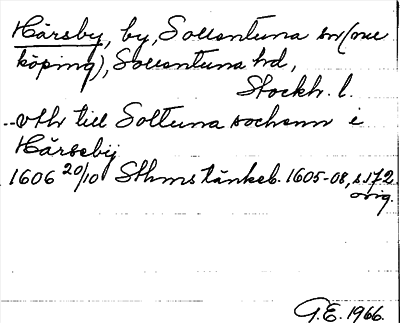 Hårsby, by, Sollentuna sn (nu
köping), Sollentuna hd,
Stockh. l.
..vthr till Soltuna sochenn i
Hårsebÿ
1606 20/10 Sthms tänkeb. 1605-08, s 172
orig.
G.E. 1966.